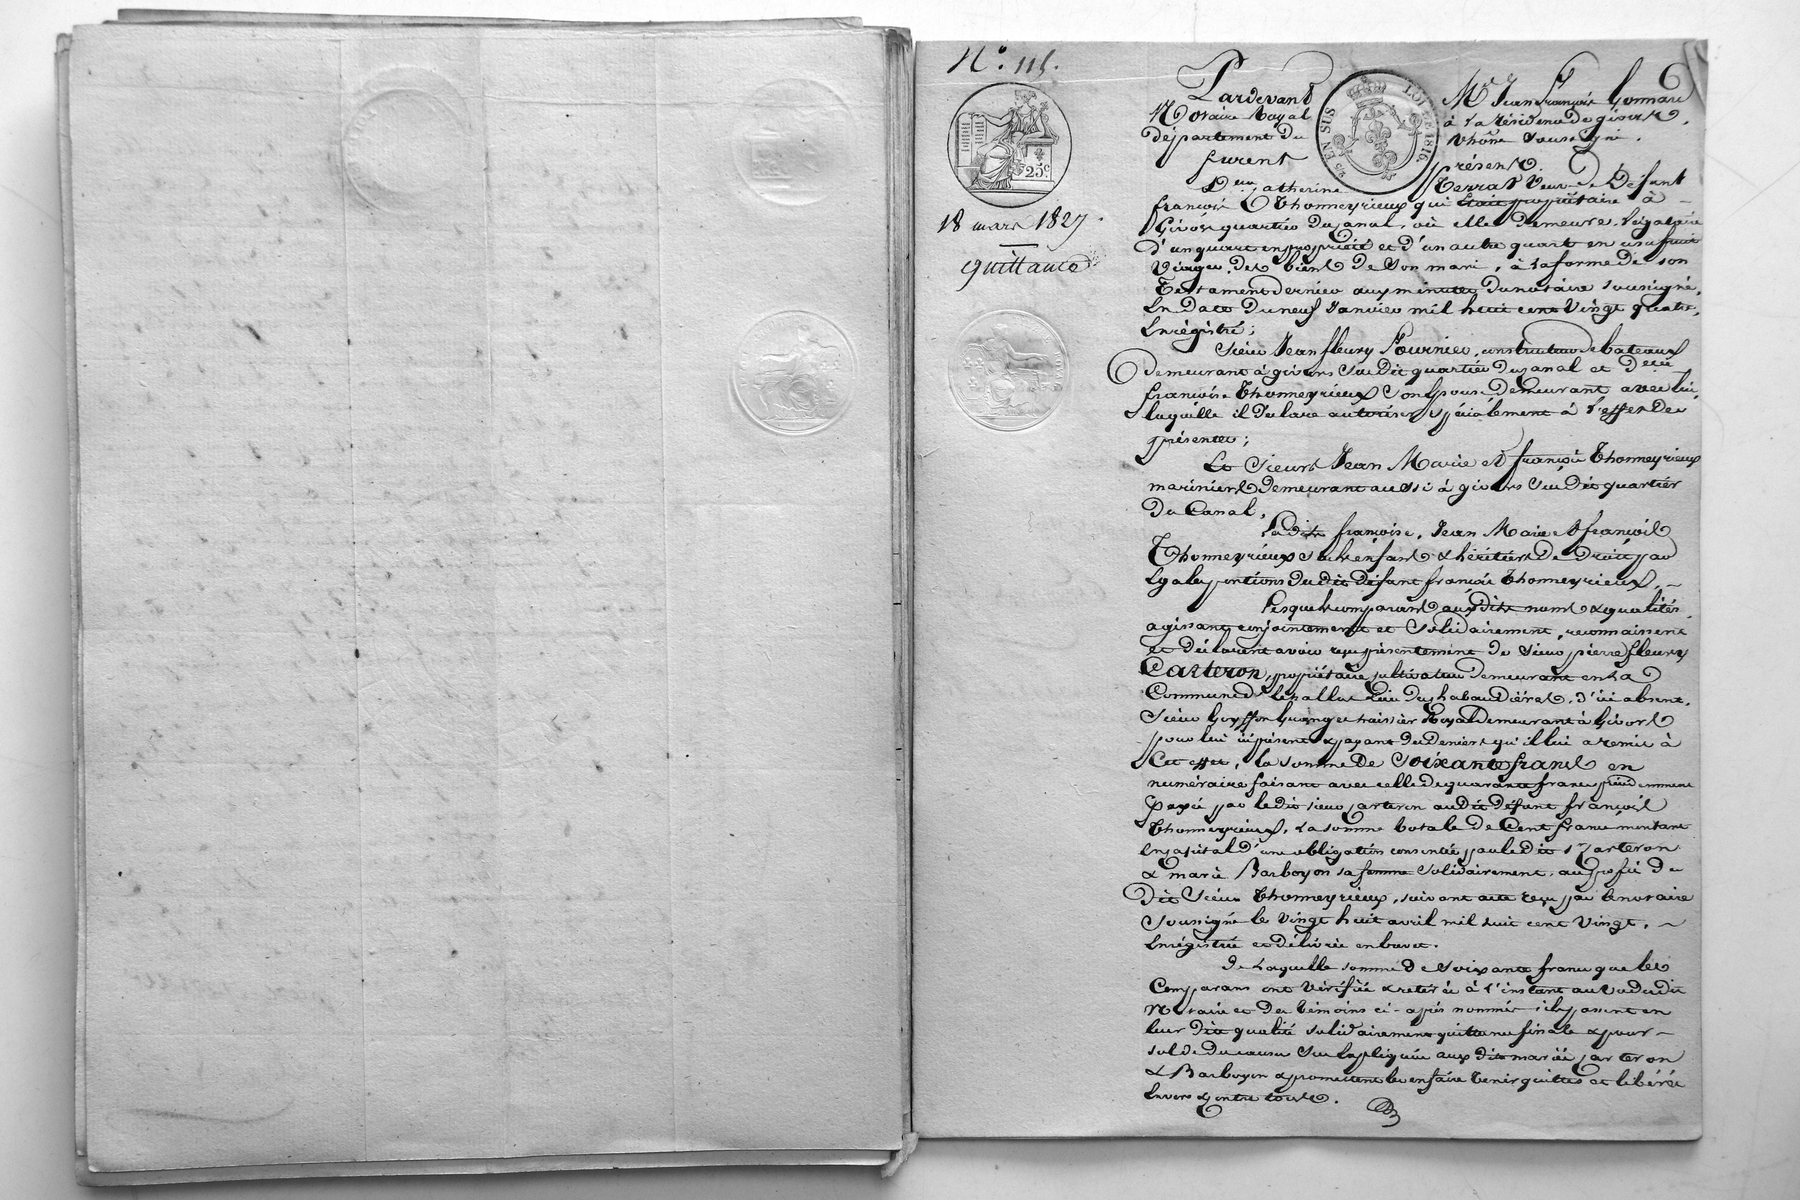 N.° 115.
25c.
18 mars 1827.
quittance
EN SUS
LOI DE 1816.
Pardevant Me Jean François Gonnard
Notaire Royal à la résidence de givors,
département du Rhône soussigné.
furent présents
D.e Catherine Terras Veuve de Défunt
françois Thonneyrieux qui était propriétaire à
Givors quartier du Canal, où elle demeure, légataire
d'un quart en propriété et d'un autre quart en usufruit
des biens de son mari, à la forme de son
Testament dernier aux minutes du notaire soussigné,
En Date du neuf Janvier mil huit cent Vingt quatre,
Enrégistré;
Sieur Jean fleury Fournier, constructeur de bateaux
Demeurant à givors susdit quartier du Canal et
françoise Thonneyrieux son épouse demeurant avec lui,
laquelle il déclare autoriser spécialement à l'effet des
présentes;
Les Sieurs Jean Marie et françois Thonneyrieux
mariniers Demeurant aussi à givors susdit quartier
Du Canal,
Ladite françoise, Jean Marie & françois
Thonneyrieux enfants & héritiers de Droit par
Egales portions dudit défunt françois Thonneyrieux,
Lesquels comparants auxdits noms & qualités
agissant conjointement et solidairement, reconnaissent
et déclarent avoir reçu présentement de sieur pierre fleury
Carteron, propriétaire cultivateur demeurant en la
Commune de lieu des habaudières, d'ici absent,
Sieur huissier Royal Demeurant à Givors
pour lui ici présent & payant des deniers qu'il lui a remis à
Cet effet, la somme de soixante francs en
numéraire faisant avec celle de quarante francs précédemment
payée par ledit sieur Carteron audit défunt françois
Thonneyrieux, la somme totale de Cent francs montant
En capital d'une obligation consentie par ledit Carteron
& marie Barboyon sa femme solidairement, au profit du
Dit Sieur Thonneyrieux, suivant acte reçu par le notaire
soussigné le vingt huit avril mil huit cent Vingt,
Enrégistrée et délivrée en brevet.
De laquelle somme de soixante francs que les
Comparans ont vérifiée & retirée à l'instant au vu dudit
Notaire et des témoins ci-après nommés ils passent en
leur dite qualité solidairement quittance finale & pour
solde du causé sus expliqué aux dits mariés Carteron
& Barboyon & promettent les en faire tenir quittes et libérés
Envers & contre tous.